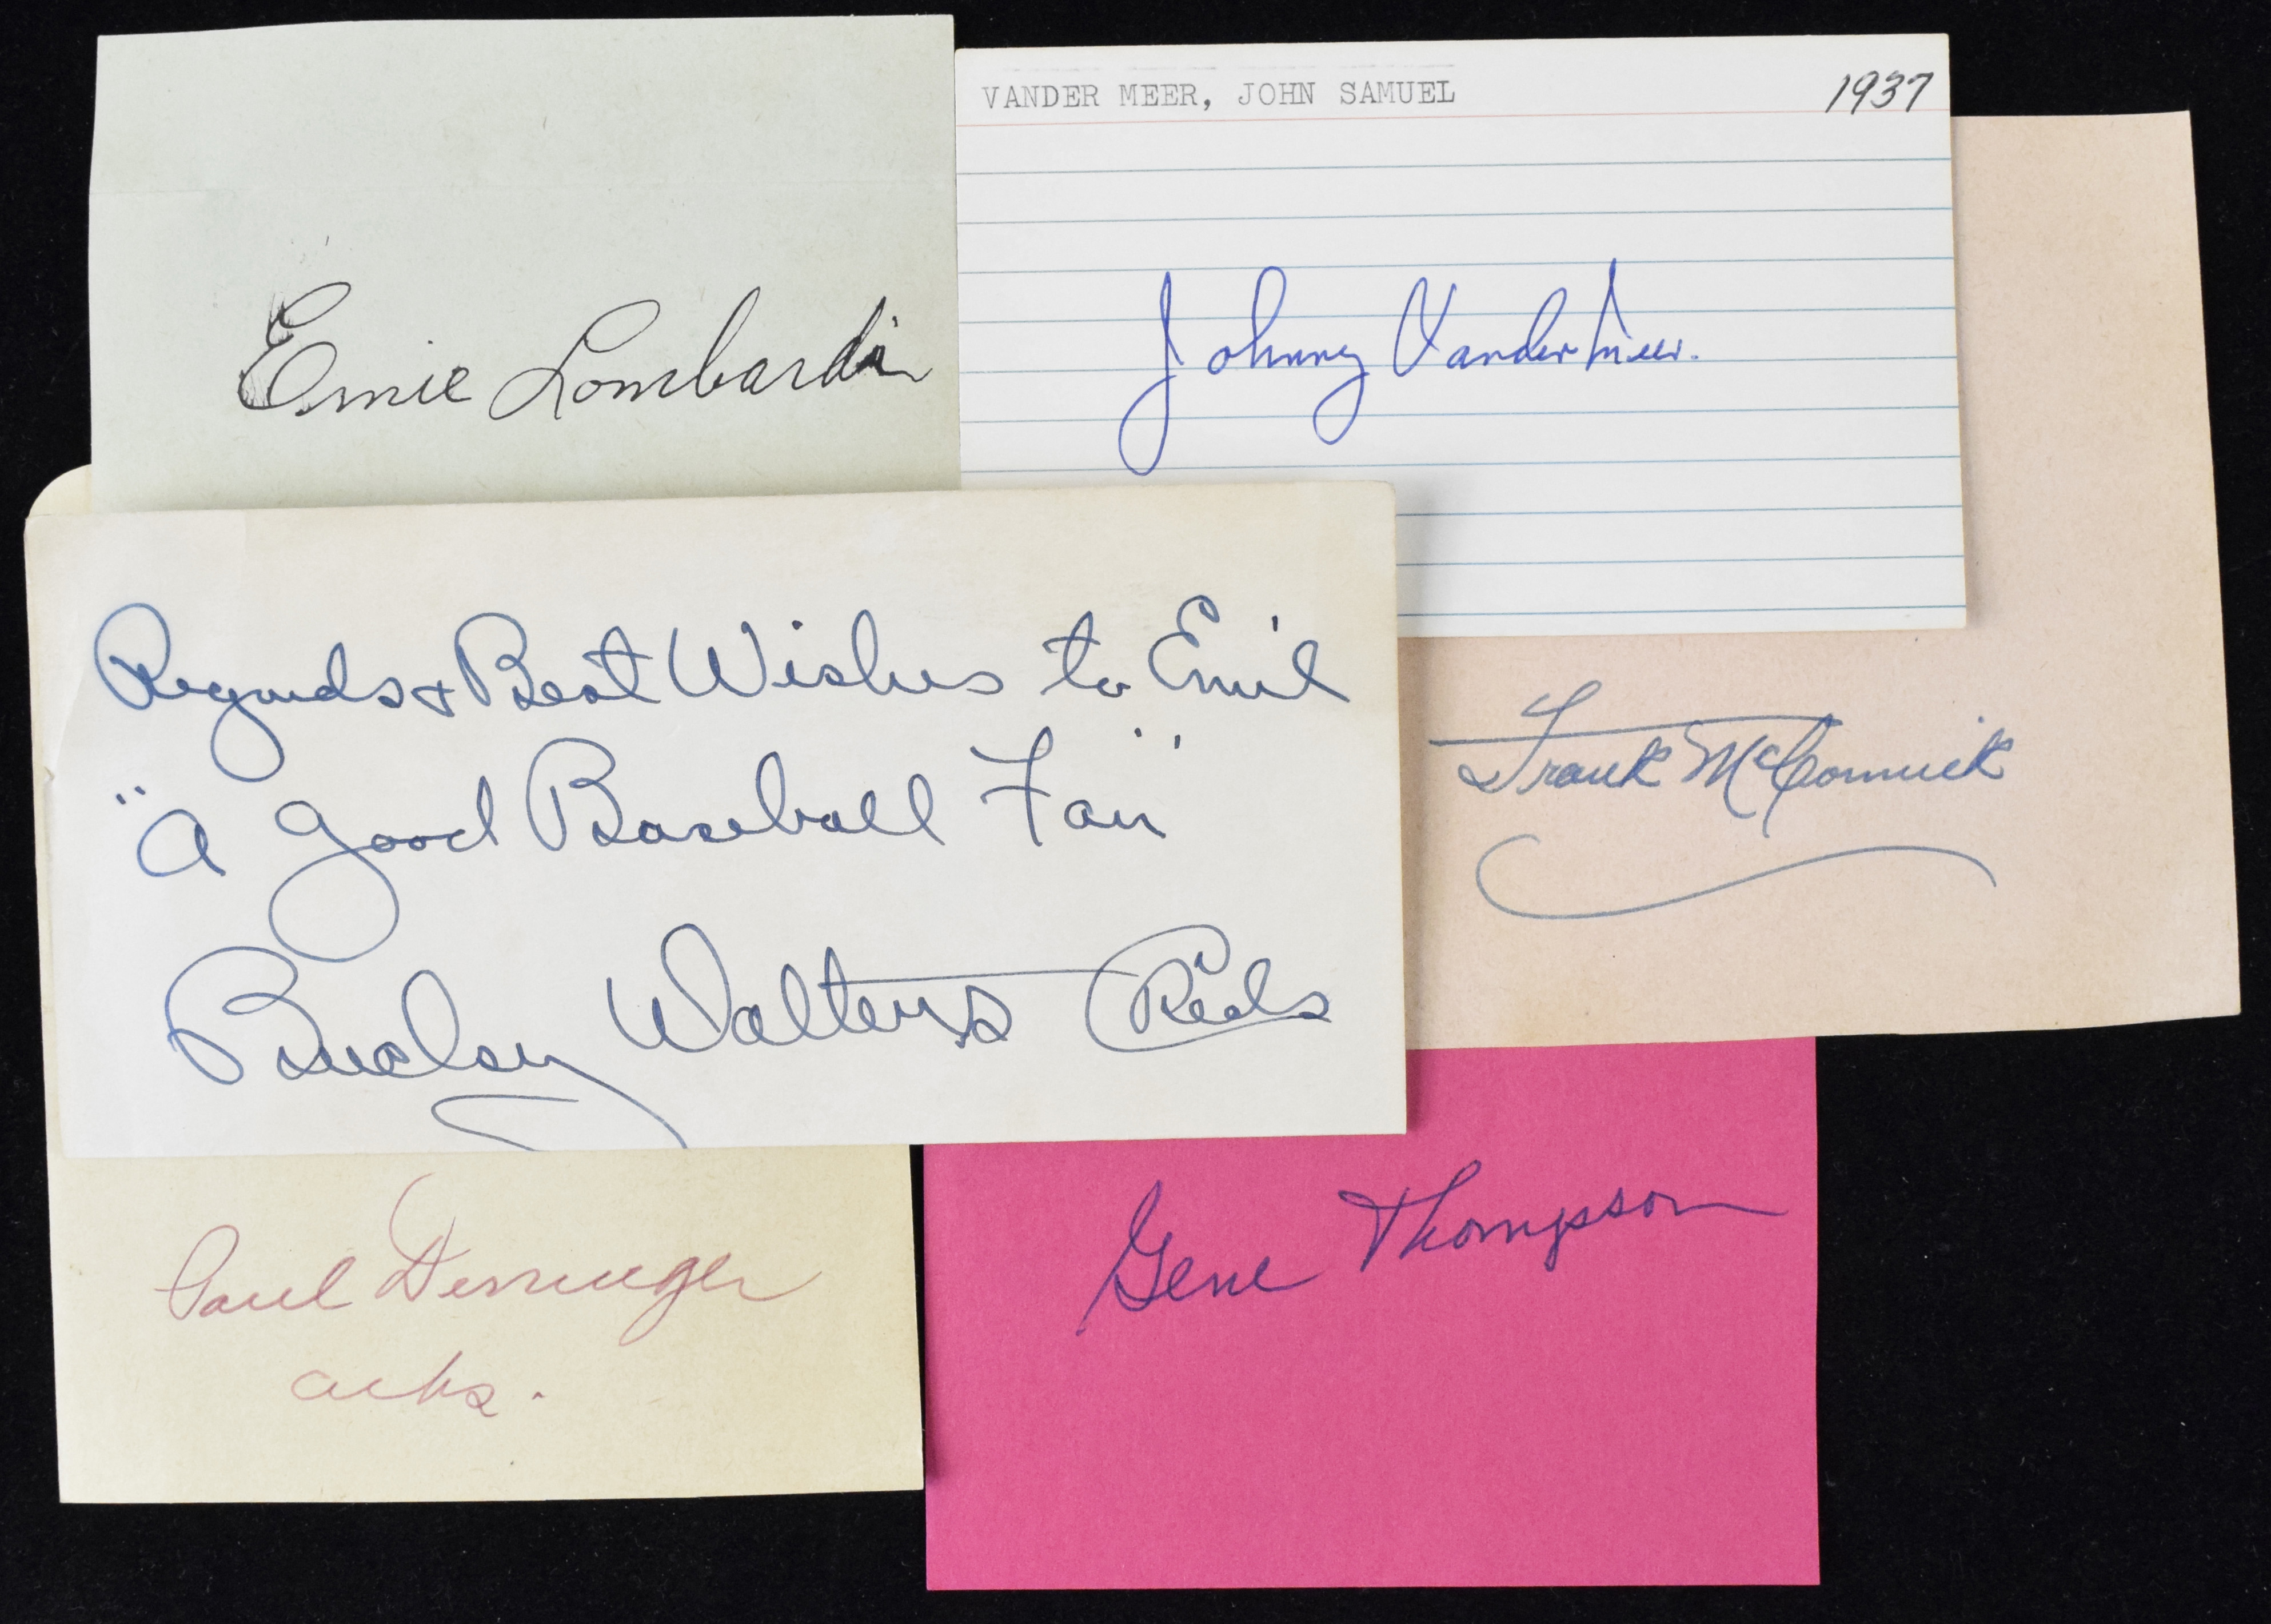 Ernie Lombardi
VANDER MEER, JOHN SAMUEL 1937
Johnny Vander Meer.
Regards & Best Wishes to Emil
"A Good Baseball Fan"
Bucky Walters Reds
Frank McCormick
Paul Derringer
Gene Thompson